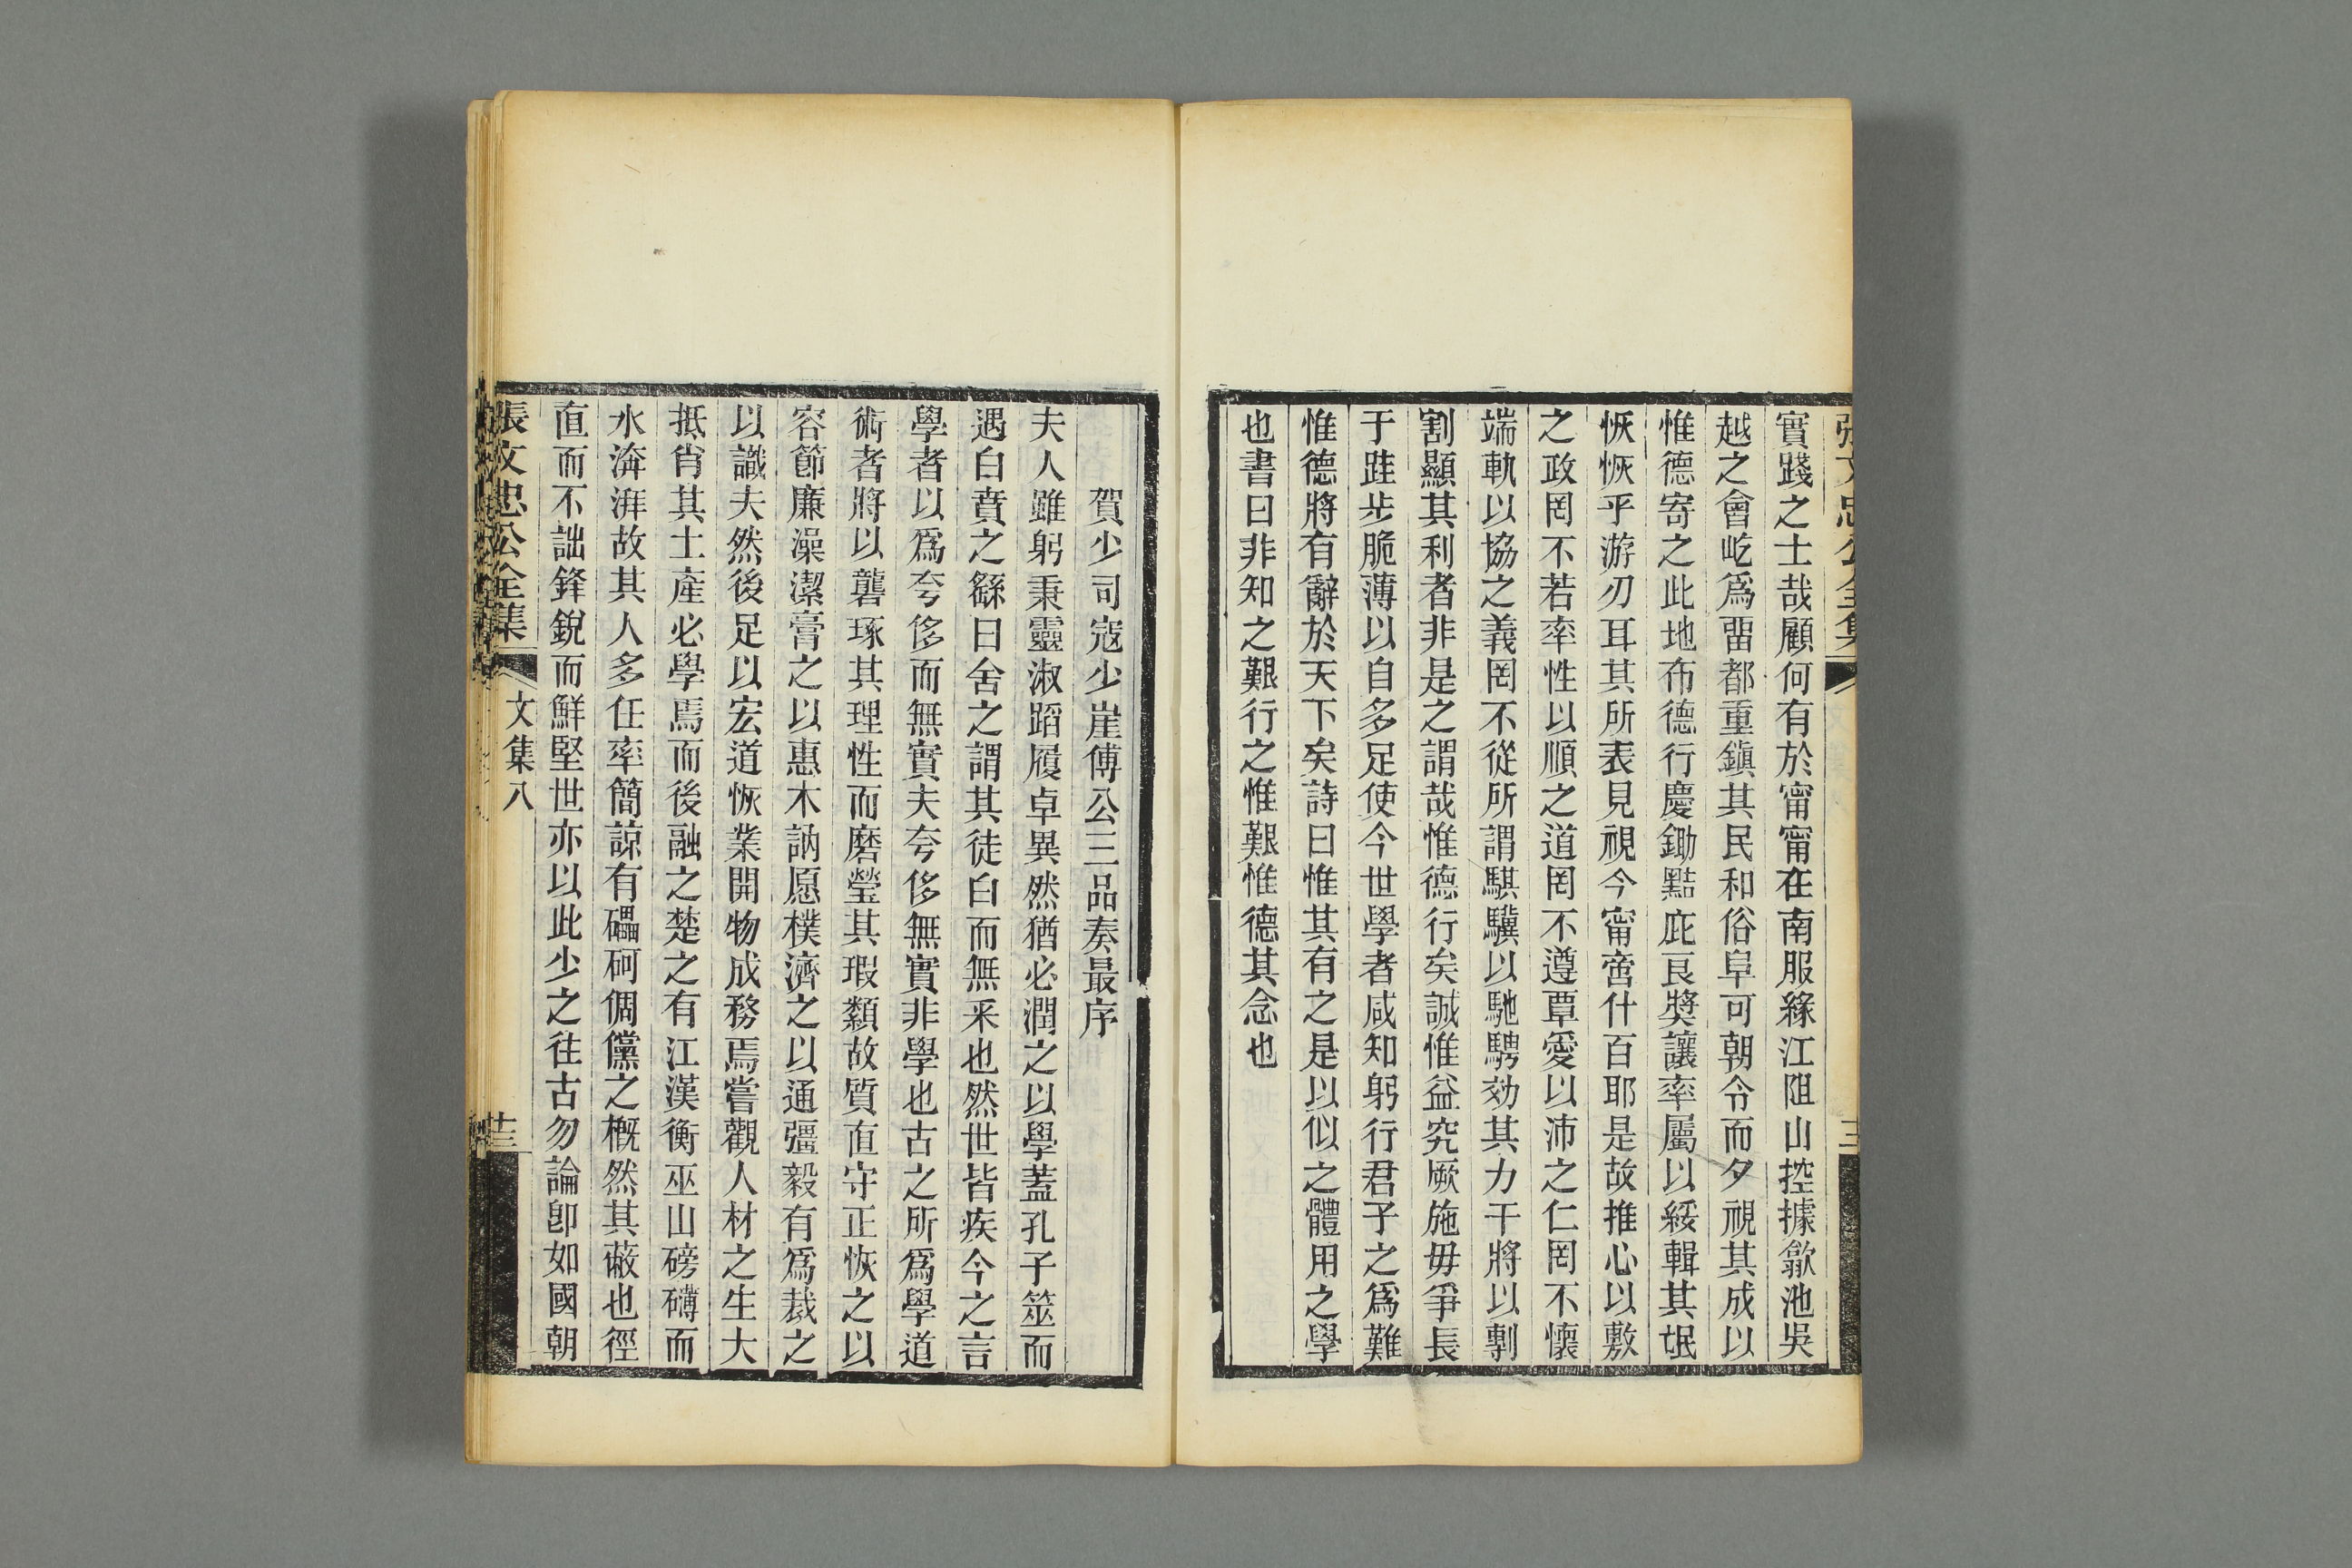 實踐之士哉顧何有於甯甯在南服緣江阻山控據歙池吳
越之會屹爲畱都重鎭其民和俗阜可朝令而夕視其成以
惟德寄之此地布德行慶鋤黠庇良奬讓率屬以綏輯其氓
恢恢乎游刃耳其所表見視今甯啻什百耶是故推心以敷
之政罔不若率性以順之道罔不遵覃愛以沛之仁罔不懷
端軌以協之義罔不從所謂騏驥以馳騁効其力干將以剸
割顯其利者非是之謂哉惟德行矣誠惟益究厥施毋爭長
于跬步脆薄以自多足使今世學者咸知躬行君子之爲難
惟德將有辭於天下矣詩曰惟其有之是以似之體用之學
也書曰非知之艱行之惟艱惟德其念也
賀少司寇少崖傅公三品奏最序
夫人雖躬秉靈淑蹈履卓異然猶必潤之以學蓋孔子筮而
遇白賁之繇曰舍之謂其徒白而無釆也然世皆疾今之言
學者以爲夸侈而無實夫夸侈無實非學也古之所爲學道
術者將以礱琢其理性而磨瑩其瑕纇故質直守正恢之以
容節廉澡潔膏之以惠木訥愿樸濟之以通彊毅有爲裁之
以識夫然後足以宏道恢業開物成務焉嘗觀人材之生大
抵肖其土產必學焉而後融之楚之有江漢衡巫山磅礴而
水渀湃故其人多任率簡諒有礧砢倜儻之槪然其蔽也徑
直而不詘鋒銳而鮮堅世亦以此少之往古勿論卽如國朝
張文忠公全集
文集八